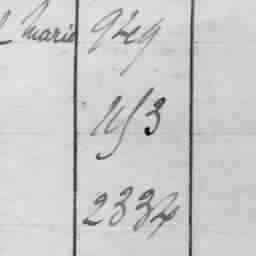 Marie 949
1153
2334